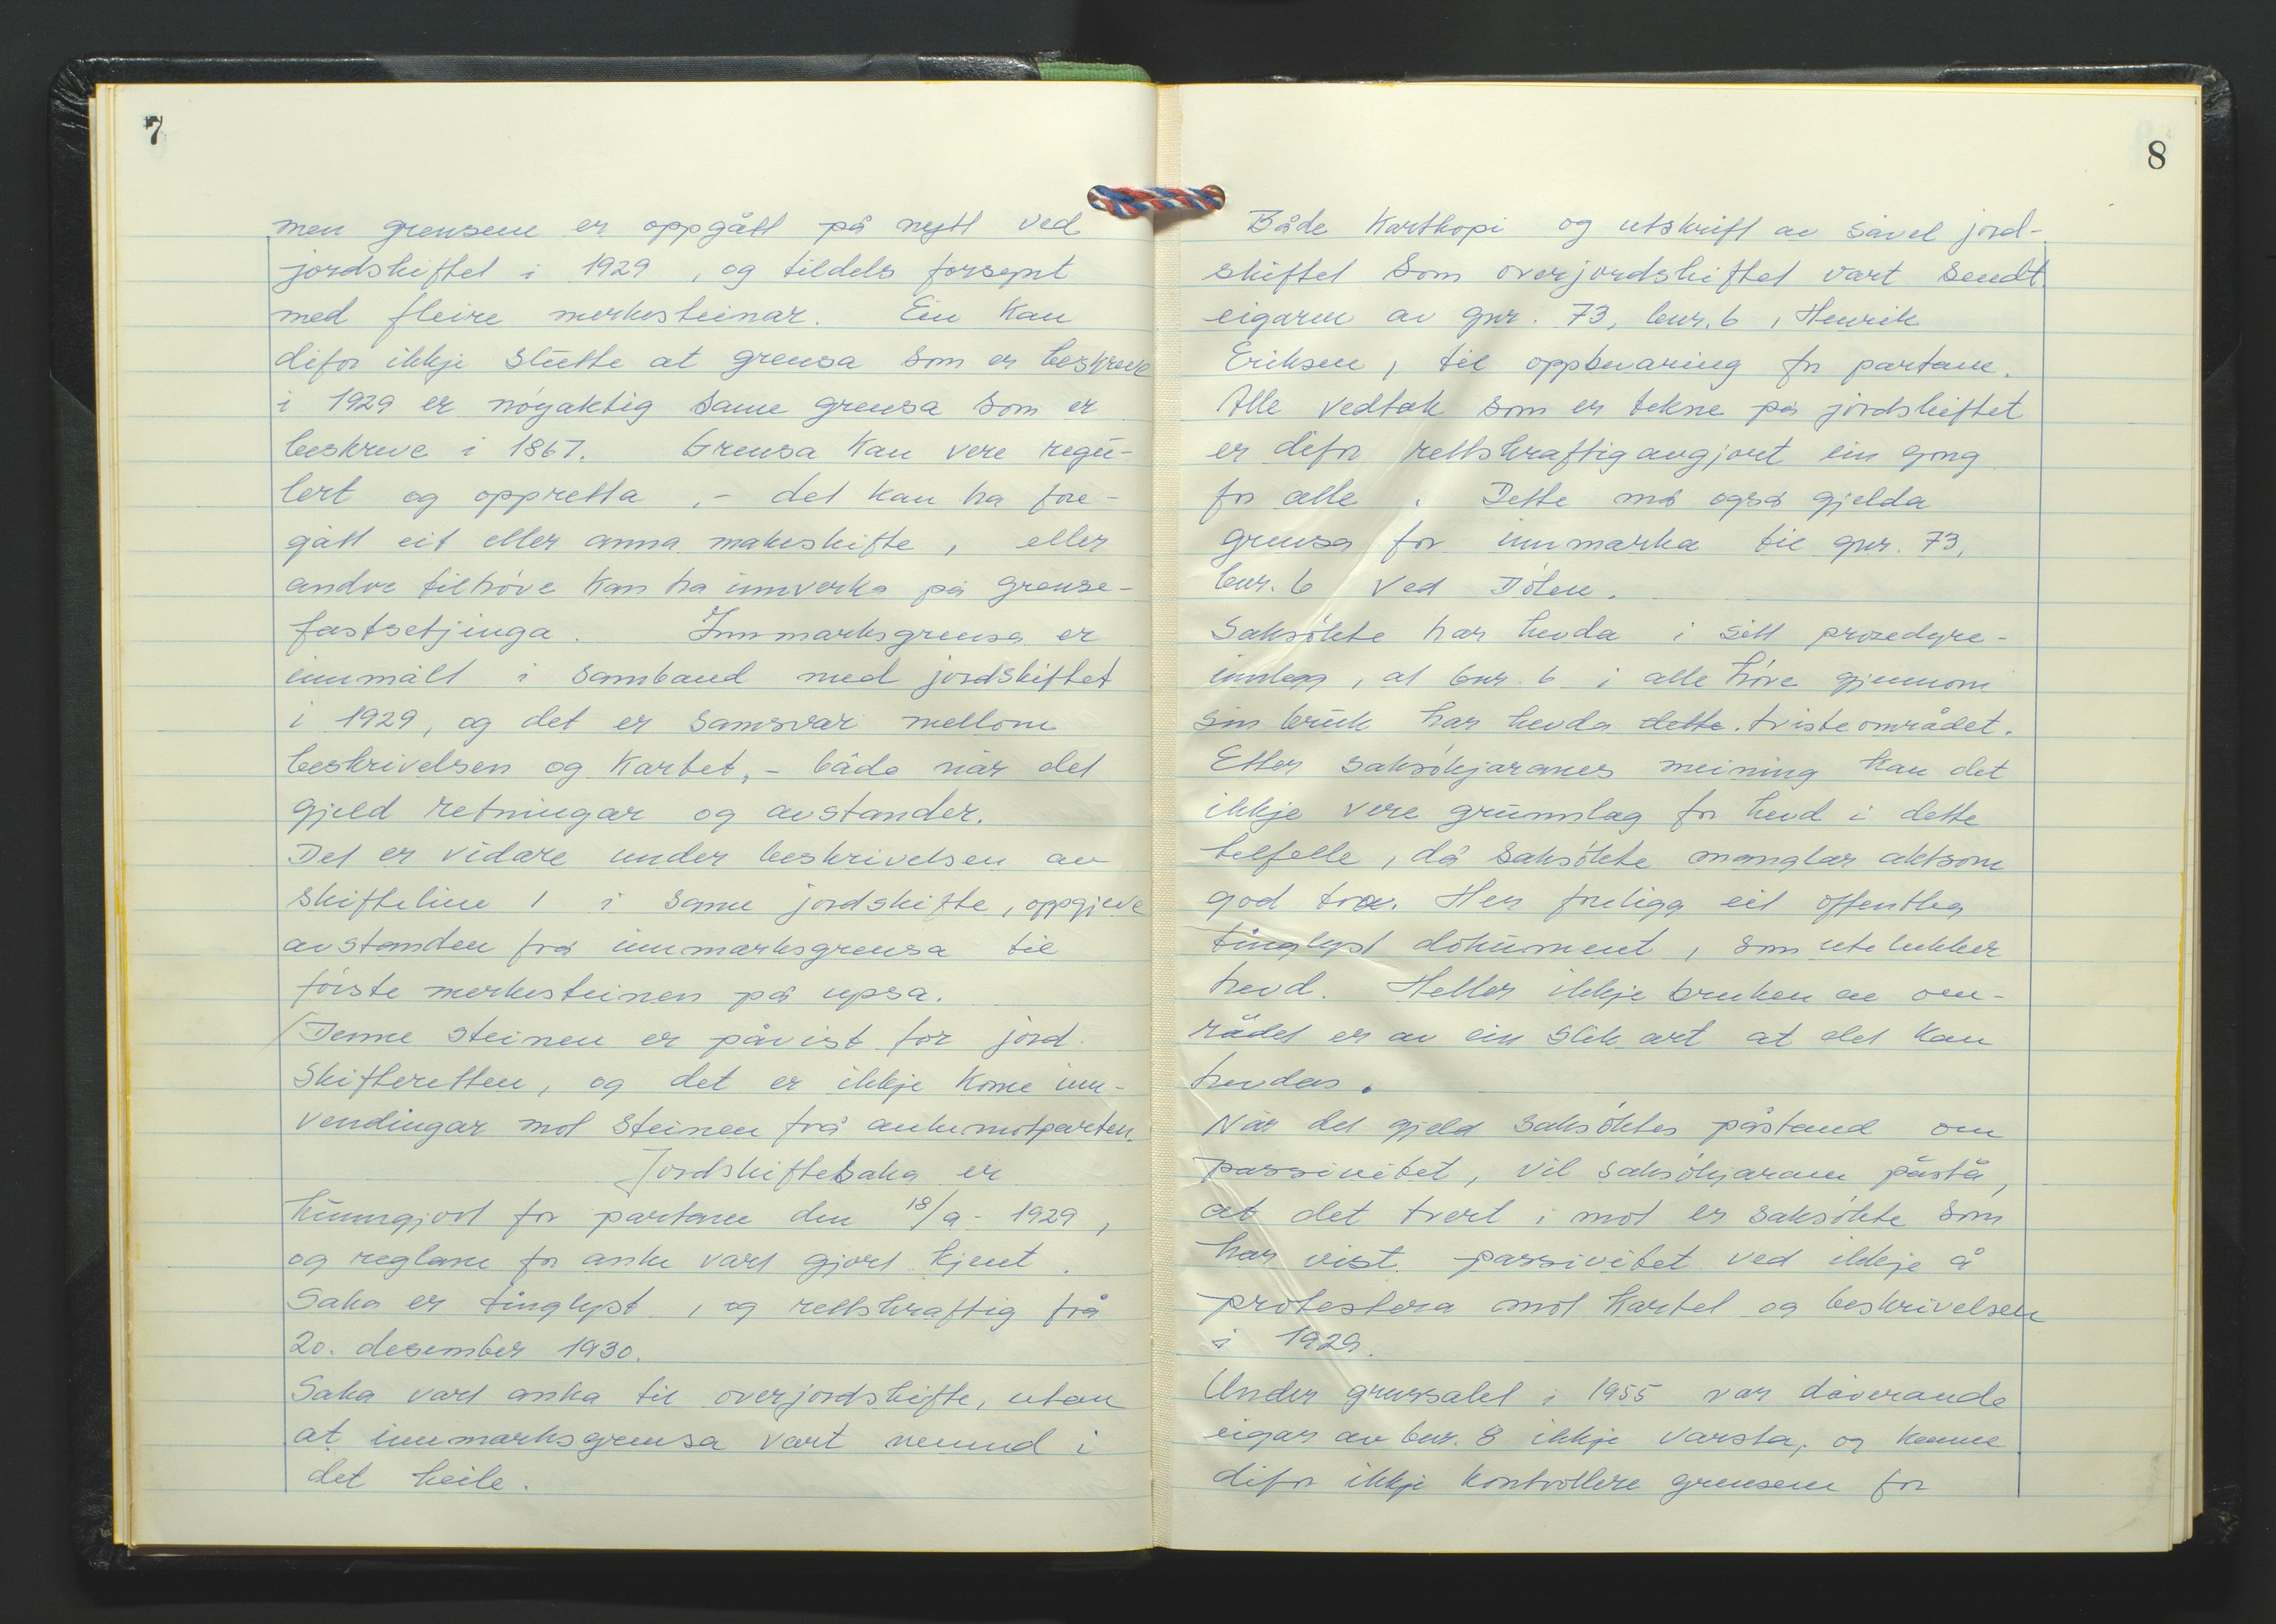 7
men grensene er oppgått på nytt ved
jordskiftet i 1929, og tildels forsynt
med fleire merkesteinar. Ein kan
difor ikkje slutte at grensa som er beskreve
i 1929 er nøyaktig same grensa som er
beskreve i 1867. Grensa kan vere regu-
lert og oppretta, - det kan ha fore-
gått eit eller anna makeskifte, eller
andre tilhøve kan ha innverka på grense-
fastsetjinga. Innmarksgrensa er
innmålt i samband med jordskiftet
i 1929, og det er samsvar mellom
beskrivelsen og kartet, - både når det
gjeld retningar og avstander.
Det er vidare under beskrivelsen av
skifteline 1 i same jordskifte, oppgjeve
avstanden frå innmarksgrensa til
første merkesteinen på upsa.
Denne steinen er påvist for jord-
skifteretten, og det er ikkje kome inn-
vendingar mot steinen frå ankemotparten.
Jordskiftesaka er
kunngjort for partane den 18/9 - 1929,
og reglane for anke vart gjort kjent.
Saka er tinglyst, og rettskraftig frå
20. desember 1930.
Saka vart anka til overjordskifte, utan
at innmarksgrensa vart nemnd i
det heile.
8
Både kartkopi og utskrift av såvel jord-
skiftet som overjordskiftet vart sendt
eigaren av gnr. 73, bnr. 6, Henrik
Eriksen, til oppbevaring for partane.
Alle vedtak som er tekne på jordskiftet
er difor rettskraftig avgjort ein gong
for alle. Dette må også gjelda
grensa for innmarka til gnr. 73,
bnr. 6 ved Dölen.
Saksøkte har hevda i sitt prosedyre-
innlegg, at bnr. 6 i alle høve gjennom
sin bruk har hevda dette. tvisteområdet.
Etter saksøkjaranes meining kan det
ikkje vere grunnlag for hevd i dette
telfelle, då saksøkte manglar aktsom
god tru. Her freligg eit offentleg
tinglyst dokument, som utelukker
hevd. Heller ikkje bruken av om-
rådet er av ein slik art at det kan
hevdas.
Når det gjeld saksøktes påstand om
passivitet, vil saksøkjarane påstå,
at det tvert i mot er saksøkte som
har vist passivitet ved ikkje å
protestera mot kartet og beskrivelsen
i 1929.
Under grensalet i 1955 var dåverande
eigar av bnr. 8 ikkje varsla, og kunne
difor ikkje kontrollere grensene for